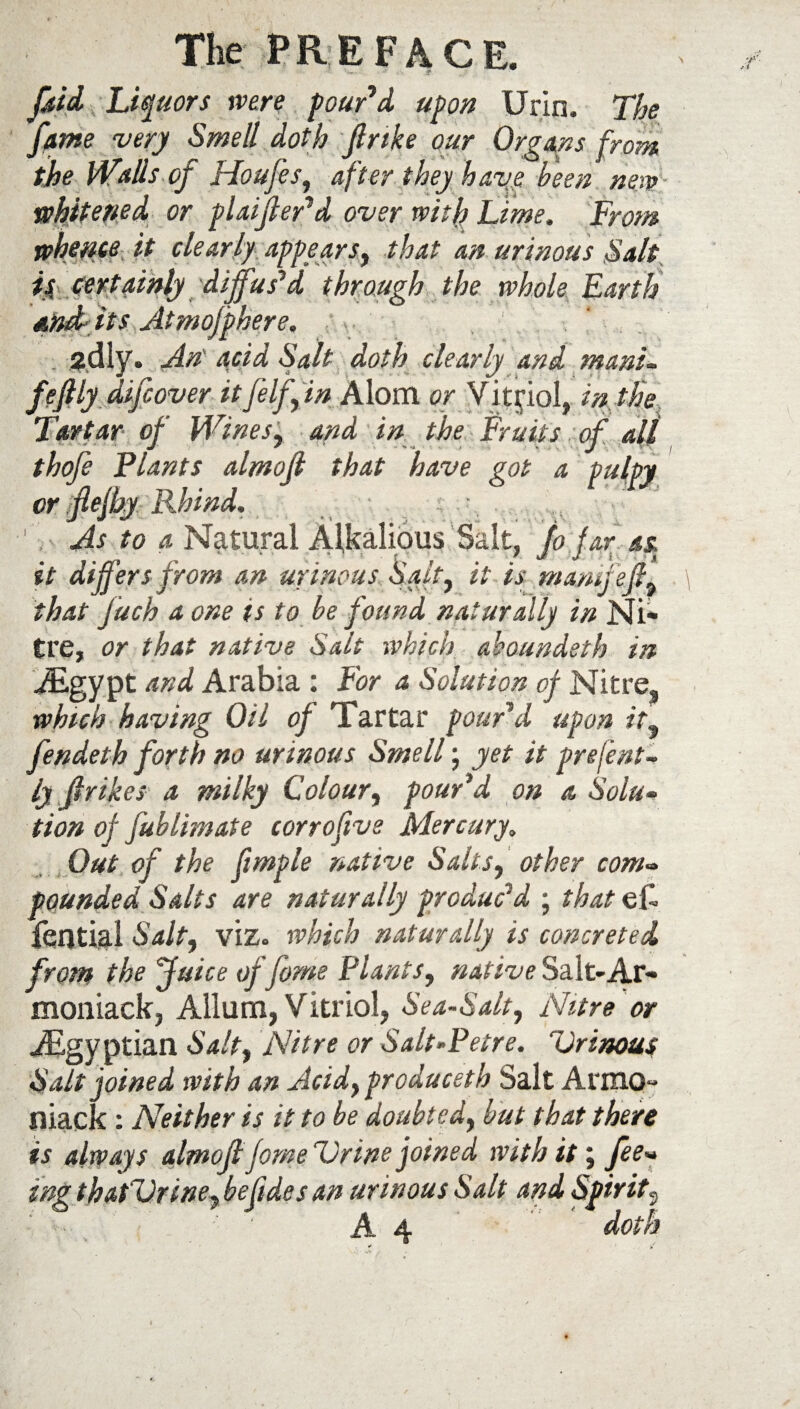 The PREFACE.
ſaid Liquors were pour'd upon Urin. The
ſame very Smell doth ſtrike our Organs from
the Walls of Houſes, after they have been new
whitened or plaiſter'd over with Lime. From
whence it clearly appears, that an urinous Salt
is certainly diffus'd through the whole Earth
and its Atmoſphere.
2dly. An acid Salt doth clearly and mani-
feſtly diſcover it ſelf, in Alom or Vitriol, in the
Tartar of Wines, and in the Fruits of all
thoſe Plants almoſt that have got a pulpy
or fleſhy Rhind.
As to a Natural Alkalious Salt, ſo far as
it differs from an urinous Salt, it is manifeſt,
that ſuch a one is to be found naturally in Ni-
tre, or that native Salt which aboundeth in
Ægypt and Arabia : For a Solution of Nitre,
which having Oil of Tartar pour'd upon it,
ſendeth forth no urinous Smell; yet it preſent-
ly ſtrikes a milky Colour, pour'd on a Solu-
tion of ſublimate corroſive Mercury.
Out of the ſimple native Salts, other com-
pounded Salts are naturally produc'd ; that eſ-
ſential Salt, viz. which naturally is concreted
from the Juice of ſome Plants, native Salt-Ar-
moniack, Allum, Vitriol, Sea-Salt, Nitre or
Ægyptian Salt, Nitre or Salt-Petre. Urinous
Salt joined with an Acid, produceth Salt Armo-
niack : Neither is it to be doubted, but that there
is always almoſt ſome Urine joined with it; ſee-
ing that Urine, beſides an urinous Salt and Spirit,
A 4 doth